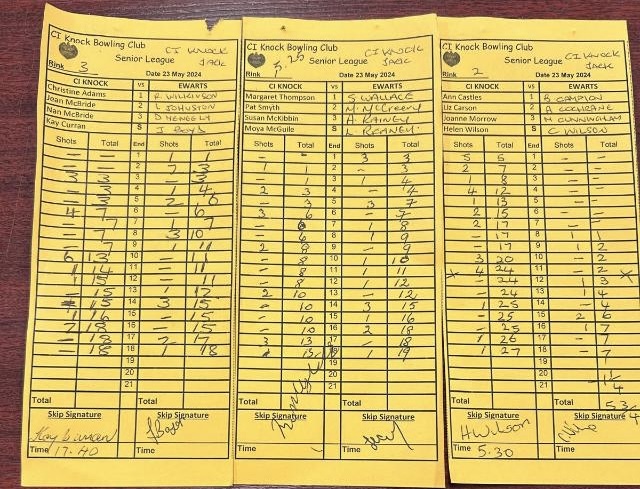 CI Knock Bowling Club
CI KNOCK
JACK
Senior League
Rink 3 Date 23 May 2024
CI KNOCK vs EWARTS
Christine Adams 1 R. WILKINSON
Joan McBride 2 L JOHNSTON
Nan McBride 3
Kay Curran S I BOYD
Shots Total End Shots Total
- - 1 1 1
- - 2 2 3
3 3 3 - 3
- 3 4 1 4
- 3 5 2 6
4 7 6 - 6
- 7 7 1 7
- 7 8 3 10
- 7 9 1 11
6 13 10 - 11
1 14 11 - 11
1 15 12 - 11
- 15 13 1 12
- 15 14 3 15
1 16 15 - 15
2 18 16 - 15
- 18 17 2 17
- 18 18 1 18
19
20
21
Total Total
Skip Signature Skip Signature
Time 17.40 Time
CI Knock Bowling Club
5.25
CI KNOCK
JACK
Senior League
Rink 1 Date 23 May 2024
CI KNOCK vs EWARTS
Margaret Thompson 1 S WALLACE
Pat Smyth 2
Susan McKibbin 3 A RAINEY
Moya McGuile S
Shots Total End Shots Total
- - 1 3 3
1 1 2 - 3
- 1 3 1 4
2 3 4 - 4
- 3 5 3 7
3 6 6 - 7
- 6 7 1 8
- 6 8 1 9
2 8 9 - 9
- 8 10 1 10
- 8 11 1 11
- 8 12 1 12
2 10 13 - 12
- 10 14 3 15
- 10 15 1 16
- 10 16 2 18
3 13 17 - 18
- 13 18 1 19
19
20
21
Total Total
Skip Signature Skip Signature
Time Time
CI Knock Bowling Club
CI KNOCK
JACK
Senior League
Rink 2 Date 23 May 2024
CI KNOCK vs EWARTS
Ann Castles 1 B CAMPION
Liz Carson 2 A COCHRANE
Joanne Morrow 3 M CUNNINGHAM
Helen Wilson S C WILSON
Shots Total End Shots Total
5 5 1 - -
2 7 2 - -
1 8 3 - -
4 12 4 - -
1 13 5 - -
2 15 6 - -
2 17 7 - -
- 17 8 1 1
- 17 9 1 2
3 20 10 - 2
x 4 24 11 - 2 x
- 24 12 1 3
- 24 13 1 4
1 25 14 - 4
- 25 15 2 6
- 25 16 1 7
1 26 17 - 7
1 27 18 - 7
19
20
21
Total Total
Skip Signature Skip Signature
H Wilson
Time 5.30 Time